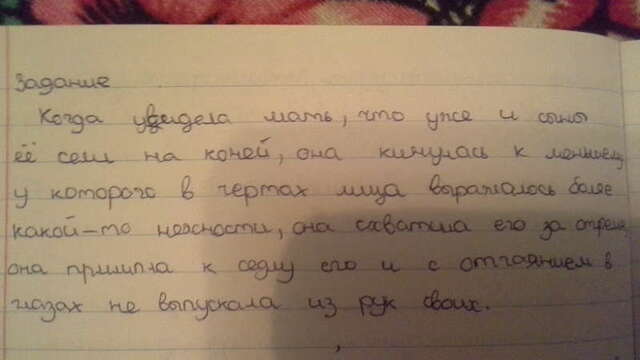 Задание
Когда увидела мать, что уже и сыны
её сели на коней, она кинулась к меньшему,
у которого в чертах лица выражалось более
какой-то нежности, она схватила его за стремя,
она прилипла к седлу его и с отчаянием в
глазах не выпускала из рук своих.